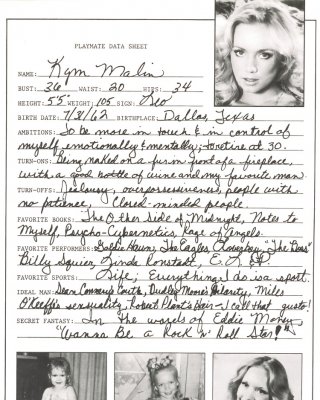 PLAYMATE DATA SHEET
NAME: Kym Malin
BUST: 36" WAIST: 20 HIPS: 34
HEIGHT: 5'5" WEIGHT: 105 SIGN: Leo
BIRTH DATE: 7/31/62 BIRTHPLACE: Dallas, Texas
AMBITIONS: To be more in touch & in control of
myself emotionally & mentally; to retire at 30.
TURN-ONS: Being naked on a fur in front of a fireplace,
with a good bottle of wine and my favorite man.
TURN-OFFS: Jealousy, overpossessiveness, people with
no patience, Closed-minded people.
FAVORITE BOOKS: The Other Side of Midnight, Notes to
Myself, Psycho-Cybernetics, Rage of Angels
FAVORITE PERFORMERS: Goldie Hawn, The Eagles, "The Boss"
Billy Squier, Linda Ronstadt, E.T.
FAVORITE SPORTS: Life; Everything I do is a sport.
IDEAL MAN: Sean Connery's Couth, Dudley Moore's Hilarity, Miles
O'Keeffe's sensuality, Robert Plant's Hair - I call that gusto!
SECRET FANTASY: In the words of Eddie Money,
"Wanna Be a Rock 'n' Roll Star!"